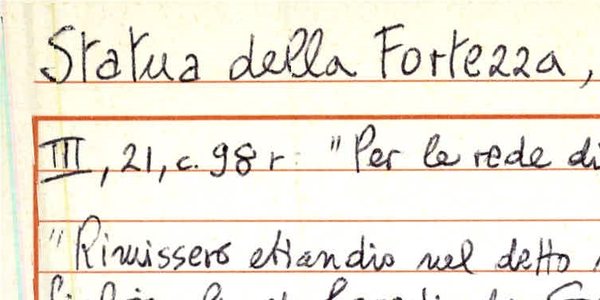 Statua della Fortezza,
III, 21, c. 98 r: "Per le rede di
"Rimissero etiandio nel detto